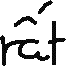 rất